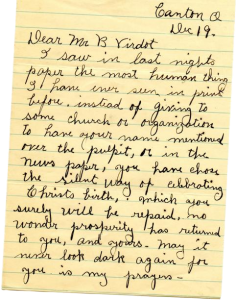 Canton O
Dec 19.
Dear Mr B Virdot
I saw in last nights
paper the most human thing
I have ever seen in print
before. instead of giving to
some church or organization
to have your name mentioned
over the pulpit, or in the
news paper, you have chose
the silent way of celebrating
Christs birth, which you
surely will be repaid, no
wonder prosperity has returned
to you, and yours. may it
never look dark again for
you is my prayers-